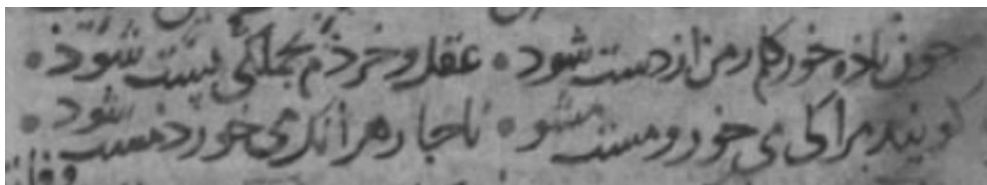 چون باده خورم کار من از دست شود • عقل و خردم بجملگی پست شوذ •
گویند مرا کی می خور و مست مشو • ناجار هرانک می خورد مست شود •